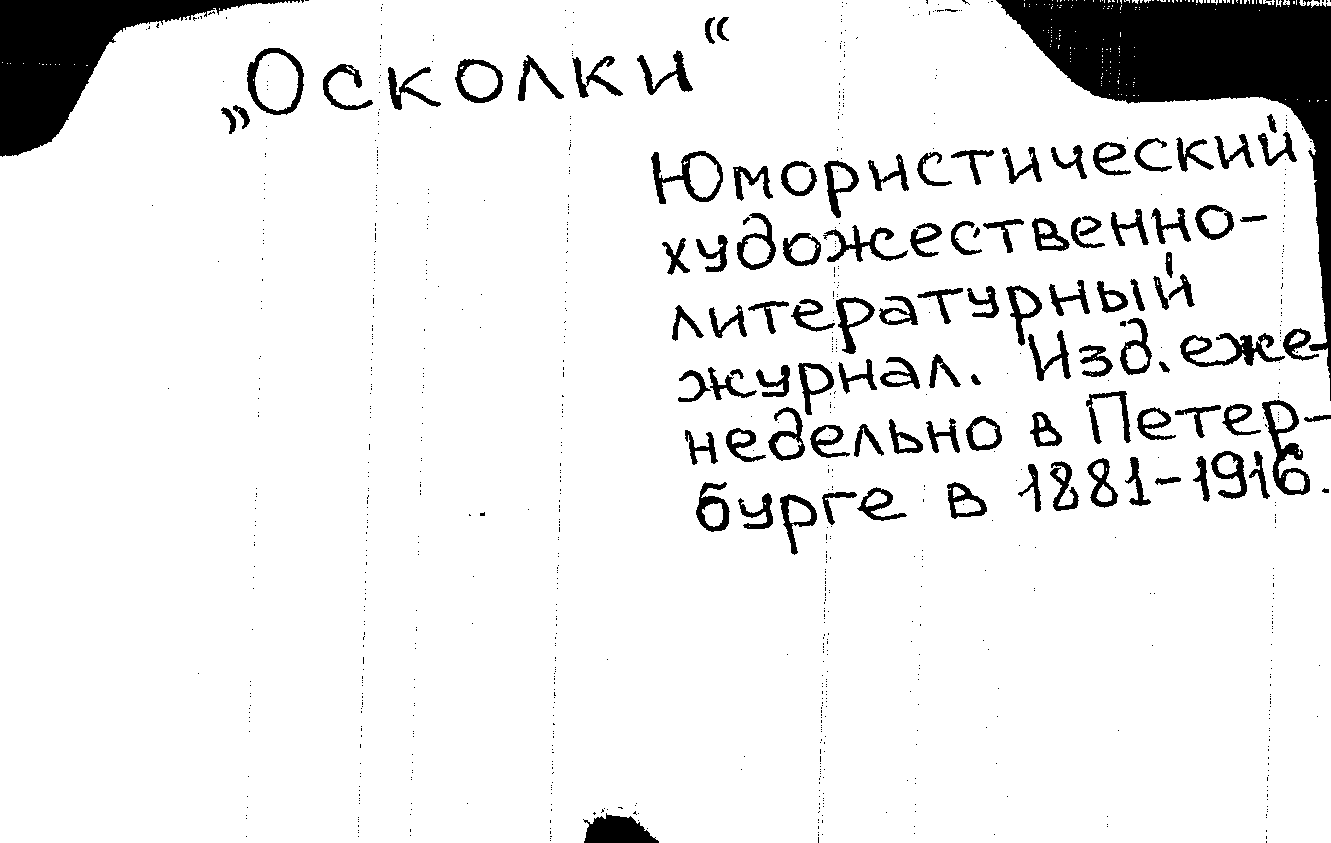 „Осколки“
Юмористический
художественно-
литературный
журнал. Изд. еже-
недельно в Петер-
бурге в 1881-1916.